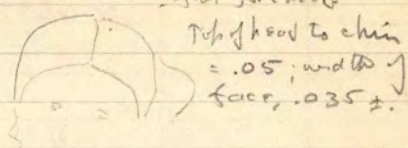 Top of head to chin
= .05; width of
face, .035 ±.